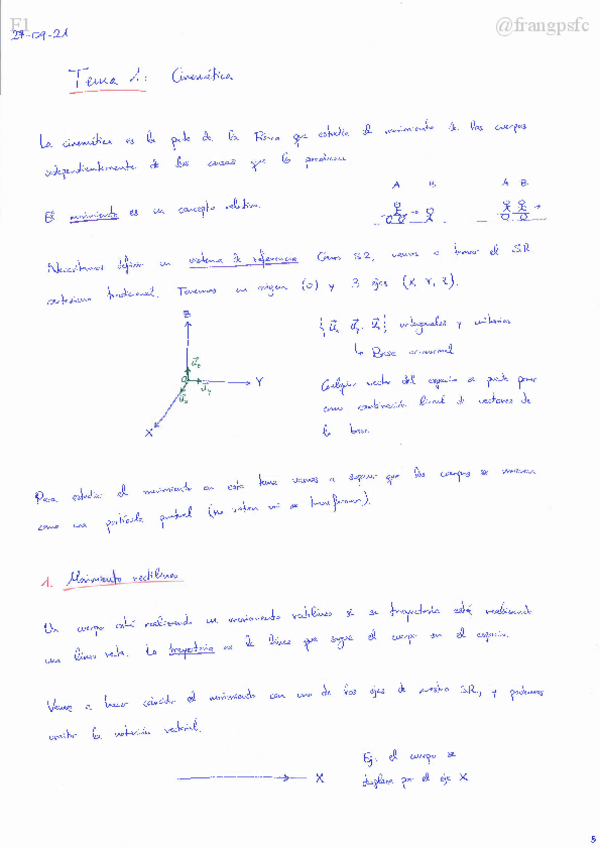 F1
@frangpsfc
27-09-21
Tema 1: Cinemática
La cinemática es la parte de la Física que estudia el movimiento de los cuerpos
independientemente de las causas que lo producen.
A B A B
El movimiento es un concepto relativo.
Necesitamos definir un sistema de referencia. Como SR, vamos a tomar el SR
cartesiano tradicional. Tenemos un origen (O) y 3 ejes (X, Y, Z).
Z
Y
X
ortogonales y unitarios
↳ Base ortonormal
Cualquier vector del espacio se puede poner
como combinación lineal de vectores de
la base.
Para estudiar el movimiento en este tema vamos a suponer que los cuerpos se mueven
como una partícula puntual (no rotan ni se transforman).
1. Movimiento rectilíneo
Un cuerpo está realizando un movimiento rectilíneo si su trayectoria está realizando
una línea recta. La trayectoria es la línea que sigue el cuerpo en el espacio.
Vamos a hacer coincidir el movimiento con uno de los ejes de nuestro SR, y podemos
omitir la notación vectorial.
X
Ej: el cuerpo se
desplaza por el eje X
5